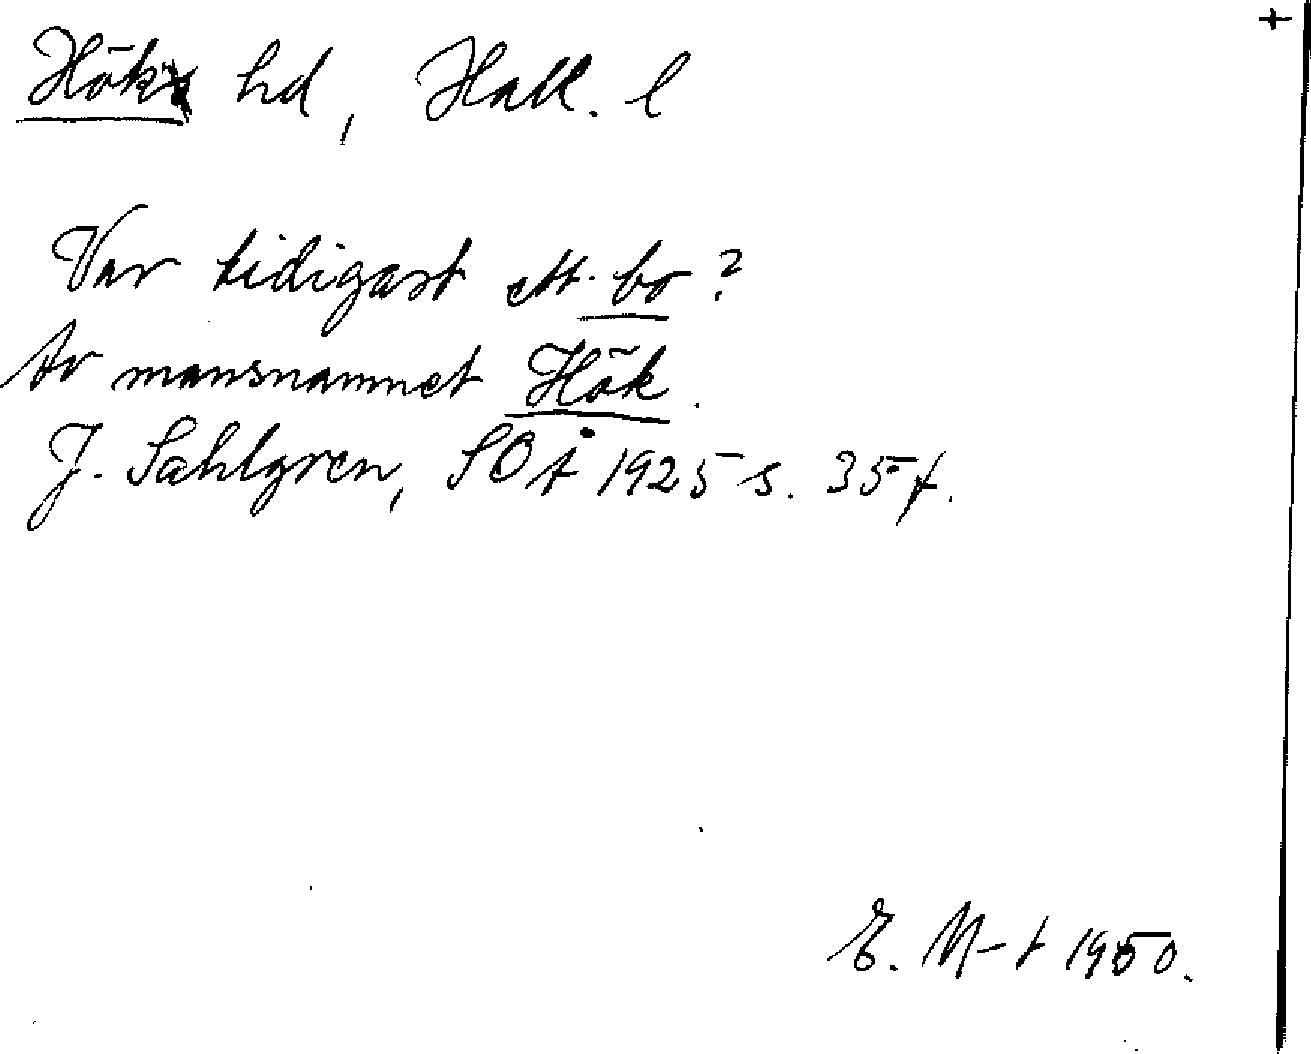 +
Höks hd, Hall. l
Var tidigast ett bo?
Av mansnamnet Hök.
J. Sahlgren, SOÅ 1925 s. 35 f.
E. M-t 1950.